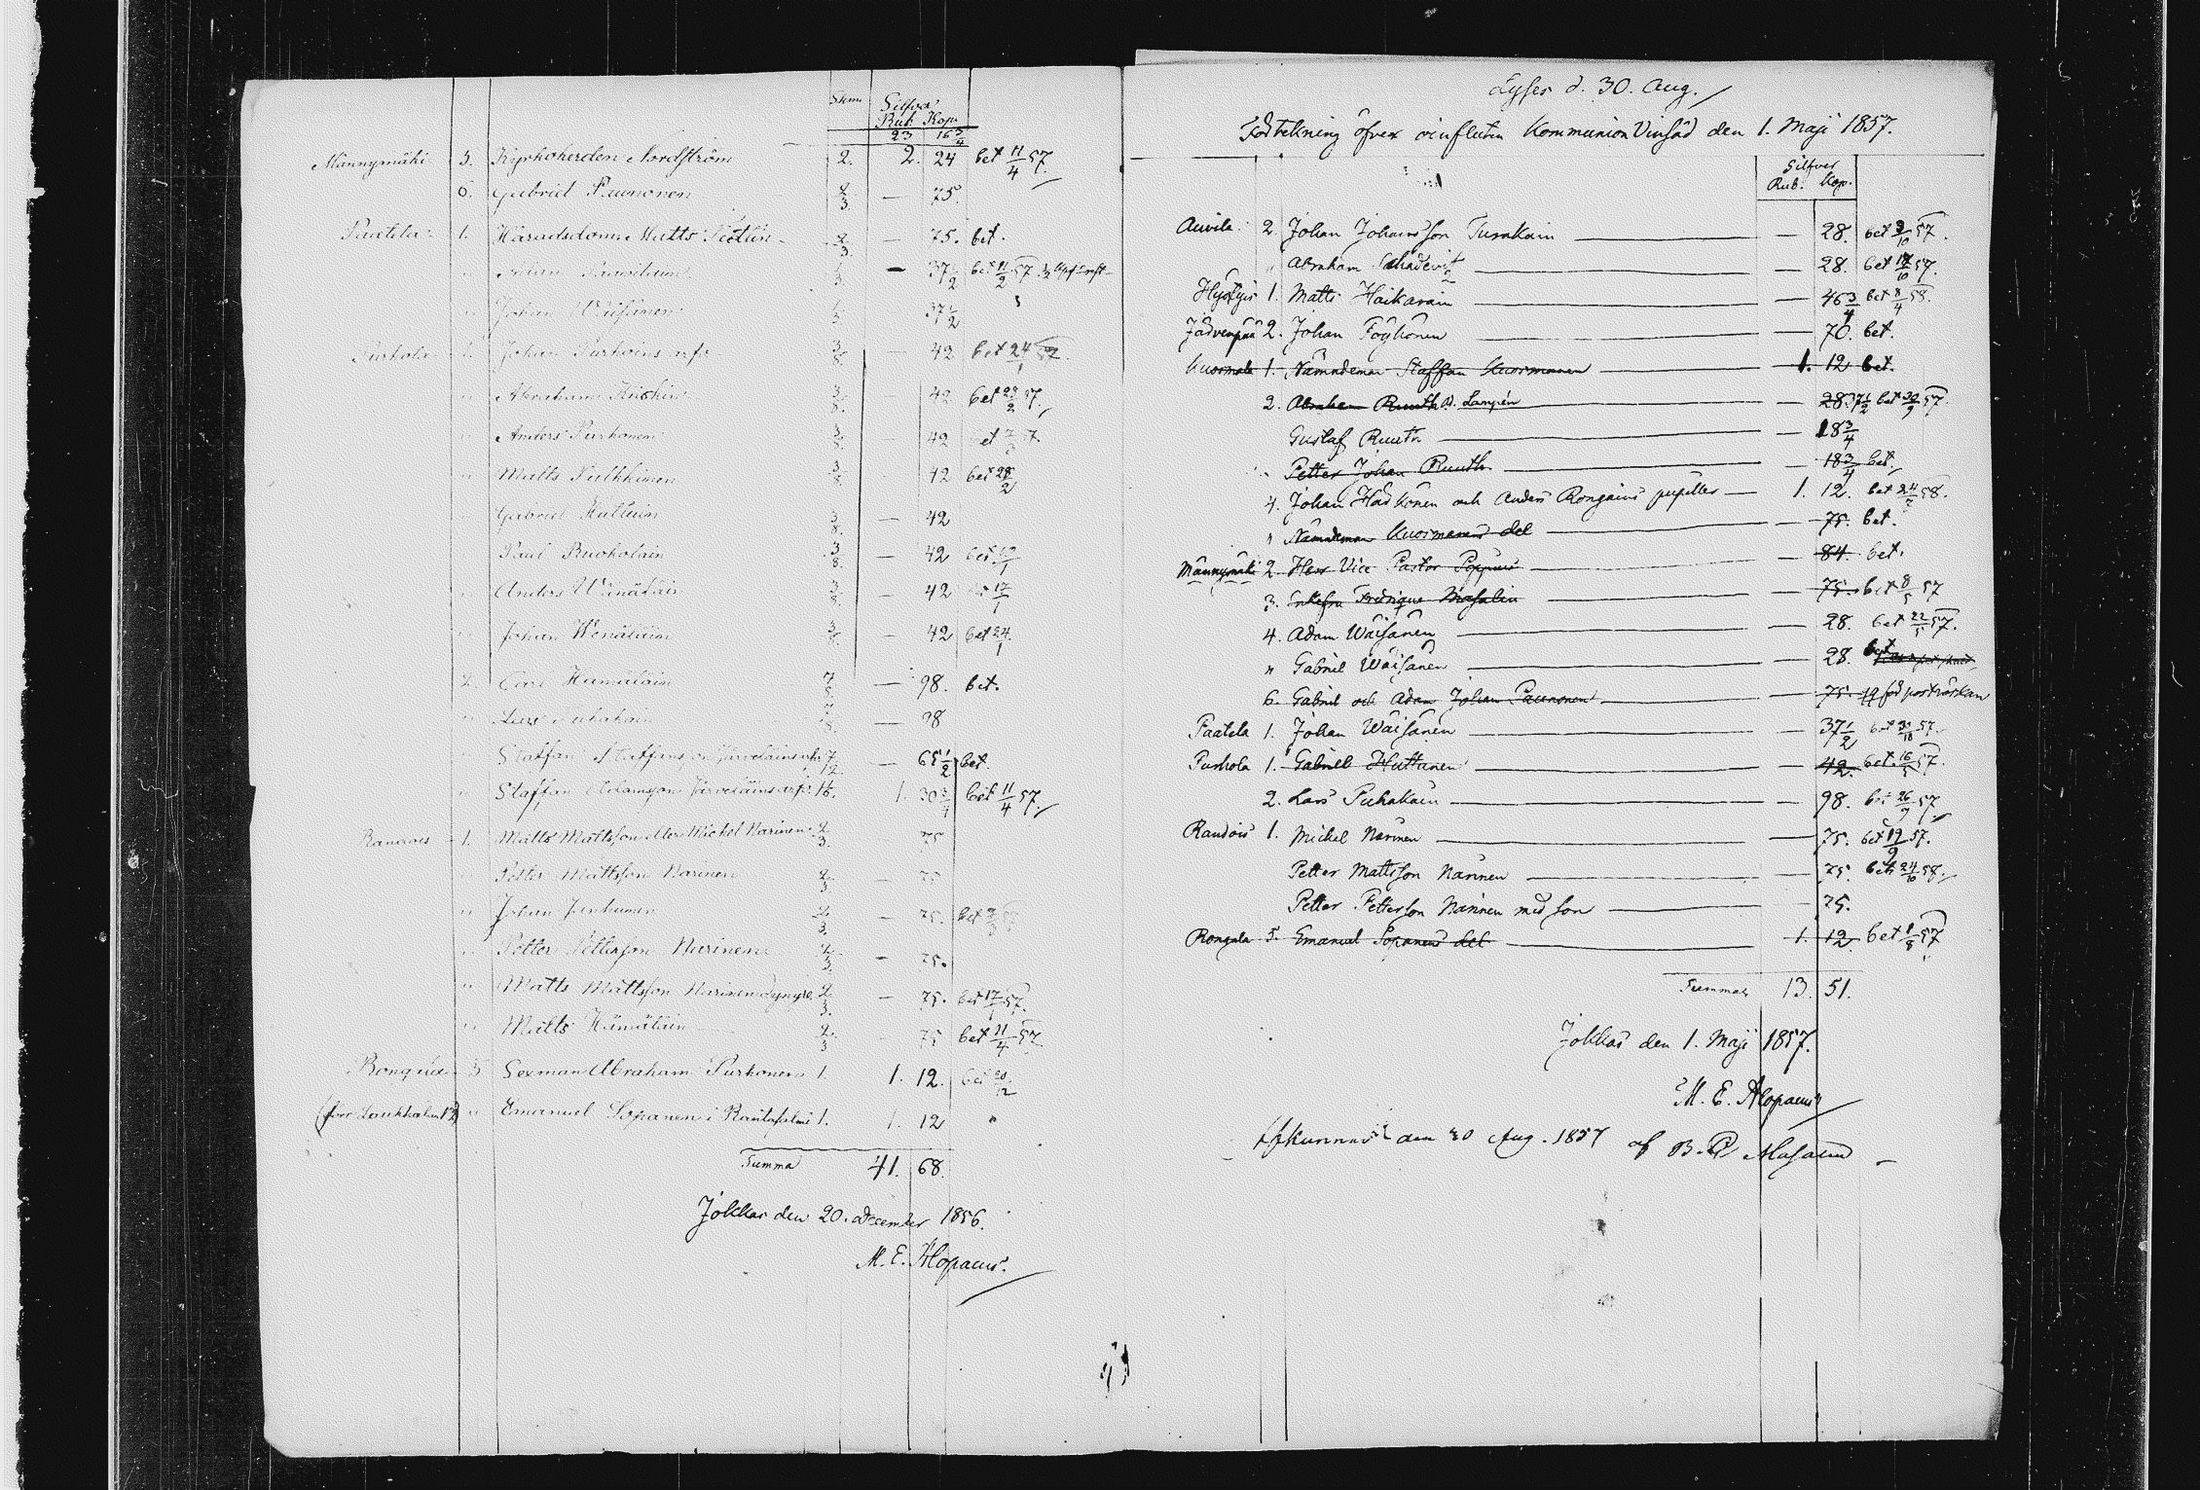 Skm. Silfver
Rub. Kop.
23 16 3/4
Männymäki 3. Kyrkoherden Nordström 2. 2. 24 bet 11/4 57.
6. Gabriel Paunonen 2/3 — 75.
Paatela 1. Häradsdom. Matts 2/3 — 75. bet.
" Johan 1/3 — 37 1/2 bet 11/2 57
" Johan Wäisänen 1/3 37 1/2 "
Purhola 1. Johan Purhoins arfv. 3/8 — 42 bet 24/1
" Abraham 3/8 — 42 bet 23/2 57.
" Anders Purhonen 3/8 — 42 bet
" Matts Pulkkinen 3/8 42 bet 28/2
" Gabriel Huttuin 3/8 — 42
" Paul Ruokolain 3/8 — 42 bet 17/1
" Anders Wänäläin 3/8 — 42 17/1
" Johan Wenäläin 3/8 — 42 bet 24/1
2. Carl Hämäläin 7/8 — 98. bet.
" Lars Puhakain 7/8 — 98
" Staffan Staffans son Järveläins arfv. 7/12 — 65 1/2 bet.
" Staffan Adamsson Järveläins arfv. 1. 30 3/4 bet 11/4 57.
Randois 1. Matts Mattsson eller Michel Narinen 2/3 — 75
" Petter Mattsson Narinen 2/3 — 75
" Johan Janhunen 2/3 — 75. bet
" Petter Pettersson Narinen 2/3 — 75.
" Matts Mattsson Narinen d. yngre 2/3 — 75. bet 17/1 57.
" Matts Hämäläin 2/3 75 bet 11/4 57.
Rongala 5 Sexman Abraham Purhonen 1. 1. 12. bet 20/12
" Emanuel Sopanen i Rantasalmi 1. 1. 12 "
Summa 41. 68.
Jokkas den 20. December 1856.
M. E. Alopaeus.
Lyses d. 30. Aug.
Förtekning öfver oinfluten Kommunion Vinsäd den 1. Maji 1857.
Silfver
Rub. Kop.
Auvila 2. Johan Johansson Turakain — 28. bet 3/10 57.
" Abraham — 28. bet 17/10 57.
1. Matts Haikarain — 46 3/4 bet 8/4 58.
Järvenpää 2. Johan Pöyhönen — 70. bet.
Kuosmala 1. Nämndeman Staffan Kuosmanen 1. 12 bet.
2. Abraham Ruuth — 28 37 1/2 bet 30/9 57.
Gustaf Ruuth — 18 3/4
" Petter Johan Ruuth — 18 3/4 bet.
4. Johan Härkönen och Anders Rongains pupiller — 1. 12. bet 24/5 58.
" Nämndeman Kuosmanens del — 75. bet.
Männymäki 2. Herr Vice Pastor Poppius — 84. bet.
3. Enkefru Fredrique Masalin — 75. bet 8/5 57
4. Adam Wäisänen — 28. bet 22/5 57.
" Gabriel Wäisänen — 28. bet
6. Gabriel och Adam Johan Paunonen — 75.
Paatela 1. Johan Wäisänen — 37 1/2 bet 57.
Purhola 1. Gabriel Huttunen — 42. bet. 16/5 57.
2. Lars Puhakain — 98. bet 26/9 57.
Randois 1. Michel Narinen — 75. bet 19/9 57.
Petter Mattsson Narinen — 75. bet 24/10 58.
Petter Pettersson Narinen med son — 75.
Rongala 5. Emanuel Sopanens del 1. 12 bet 1/8 57
Summa 13. 51.
Jokkas den 1. Maji 1857.
M. E. Alopaeus
den 30 Aug. 1857 af